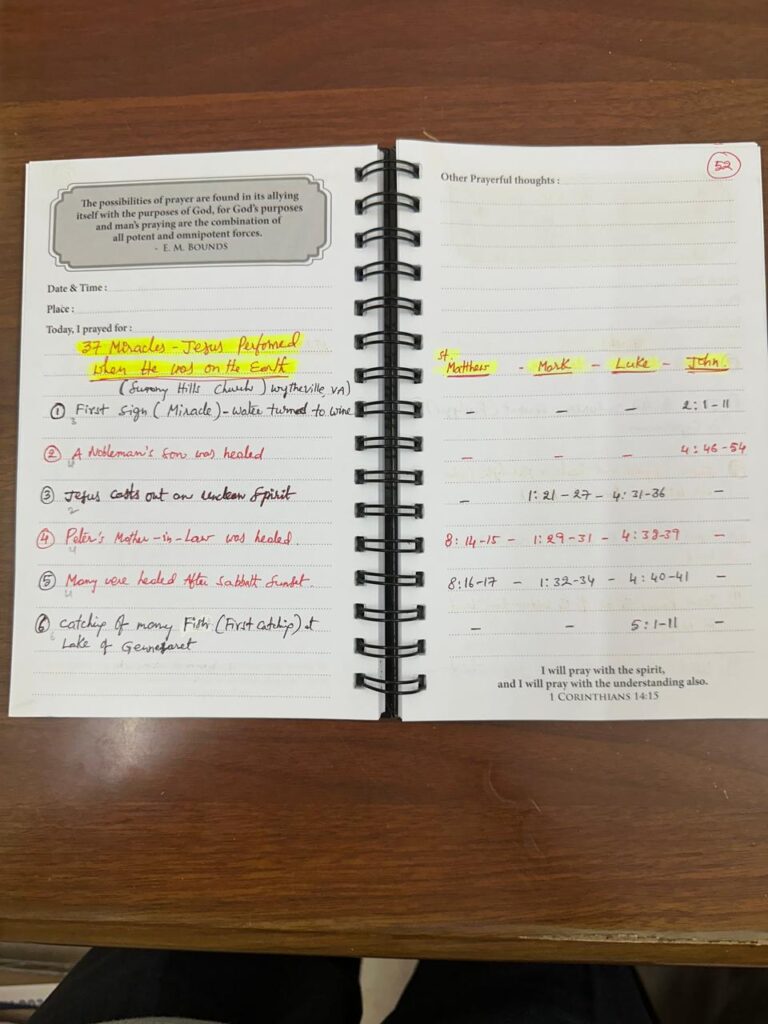 The possibilities of prayer are found in its allying
itself with the purposes of God, for God's purposes
and man's praying are the combination of
all potent and omnipotent forces.
- E. M. BOUNDS
Date & Time :
Place :
Today, I prayed for :
37 Miracles - Jesus Performed
when He was on the Earth
(Hills Church) Wytheville, VA)
① First Sign (Miracle) - water turned to wine
3
② A Nobleman's Son was healed
4
③ Jesus casts out an unclean Spirit
2
④ Peter's Mother-in-Law was healed.
4
⑤ Many were healed After Sabbath Sunset.
4
⑥ Catching of many Fish (First catching) at
6
Lake of Gennesaret
52
Other Prayerful thoughts :
St.
Matthew - Mark - Luke - John.
- - - 2:1-11
- - - 4:46-54
- 1:21-27 - 4:31-36 -
8:14-15 - 1:29-31 - 4:38-39 -
8:16-17 - 1:32-34 - 4:40-41 -
- - 5:1-11 -
I will pray with the spirit,
and I will pray with the understanding also.
1 CORINTHIANS 14:15